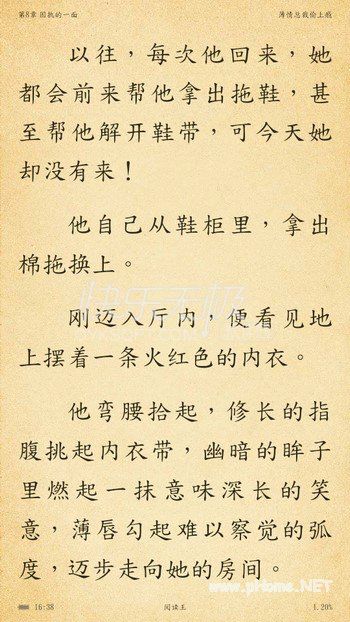 第8章 固执的一面 薄情总裁偷上瘾
以往，每次他回来，她
都会前来帮他拿出拖鞋，甚
至帮他解开鞋带，可今天她
却没有来！
他自己从鞋柜里，拿出
棉拖换上。
刚迈入厅内，便看见地
上摆着一条火红色的内衣。
他弯腰拾起，修长的指
腹挑起内衣带，幽暗的眸子
里燃起一抹意味深长的笑
意，薄唇勾起难以察觉的弧
度，迈步走向她的房间。
16:38 阅读王 1.20%